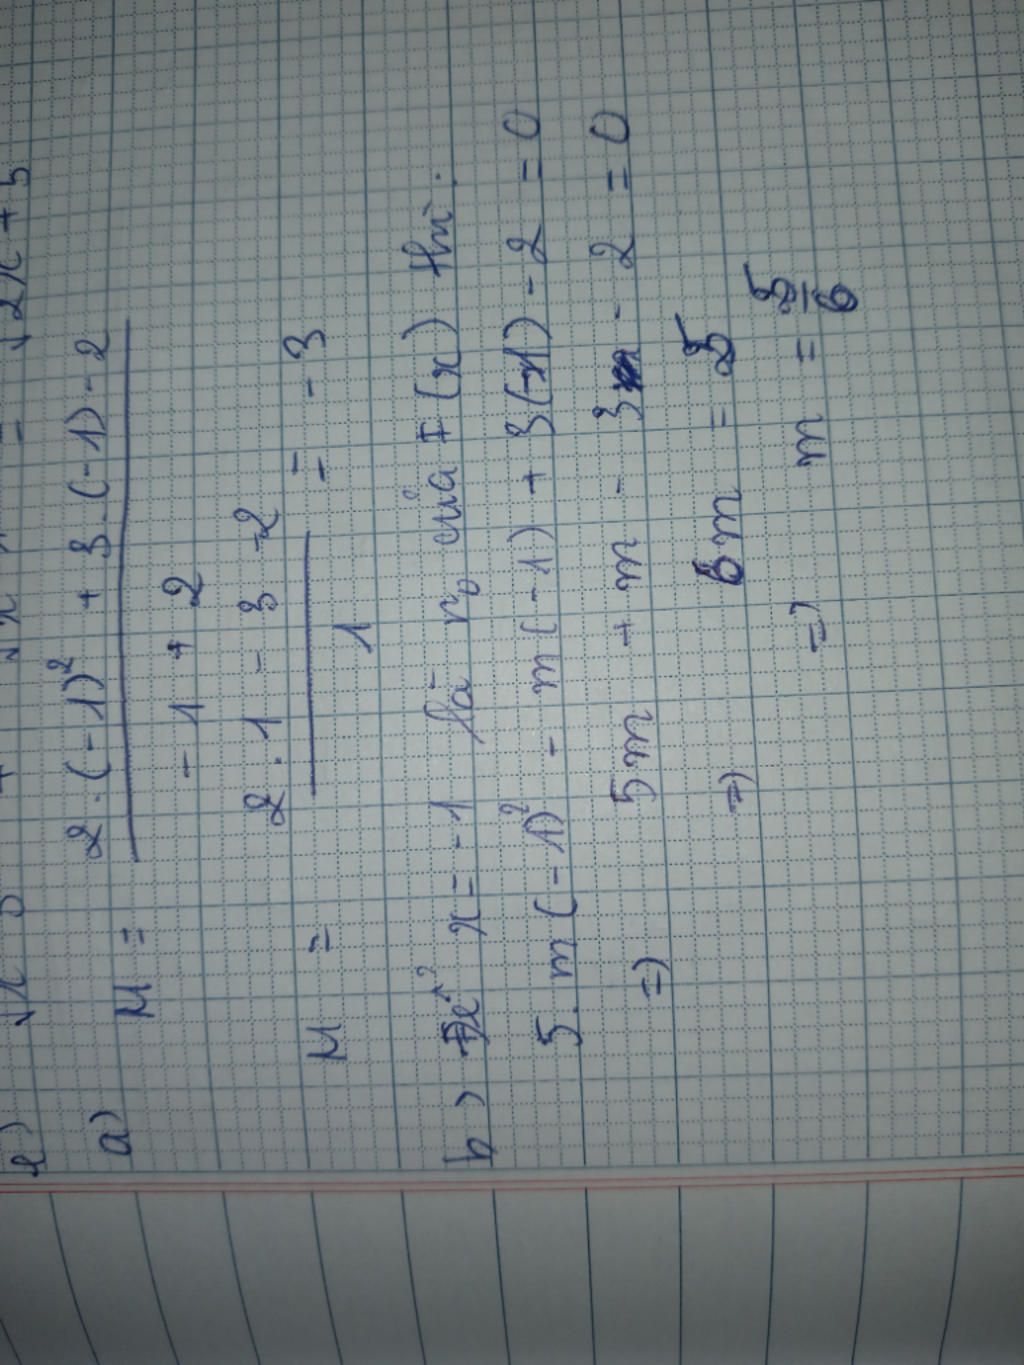 = √2x + 5
a) M = (2.(-1)² + 3.(-1) - 2) / (-1 + 2)
M = (2.1 - 3 - 2) / 1 = -3
b) Để x = -1 là n₀ của F(x) thì:
5.m(-1)² - m(-1) + 3(-1) - 2 = 0
=) 5m + m - 3 - 2 = 0
=) 6m = 5
=) m = 5/6